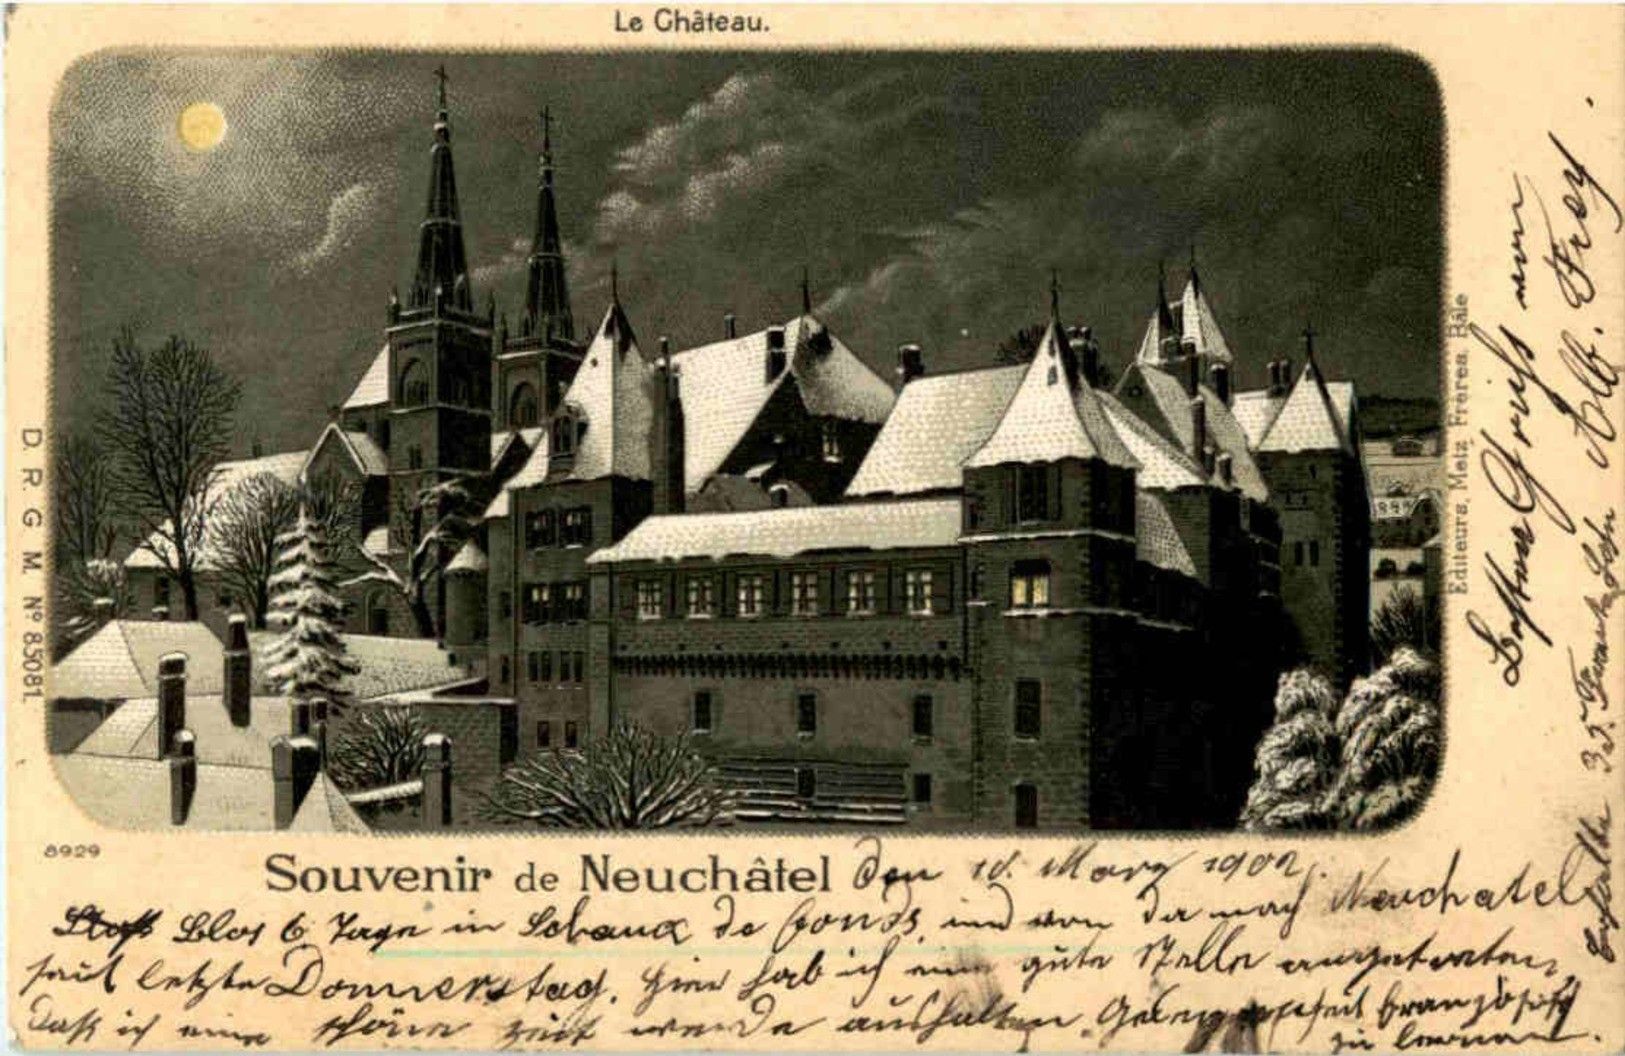 Le Château.
D. R. G. M. Nº 85081.
Editeurs, Metz Frères, Bâle
8929
Souvenir de Neuchâtel den 18. März 1902.
Blos 6 Tage in Schaux de fonds, und von da nach Neuchatel
seit letzte Donnerstag. hier hab ich eine gute Stelle angetreten,
daß ich eine schöne zeit werde aushalten Gelegenheit französisch
zu lernen.
Erhalte 3
Alb. Frey